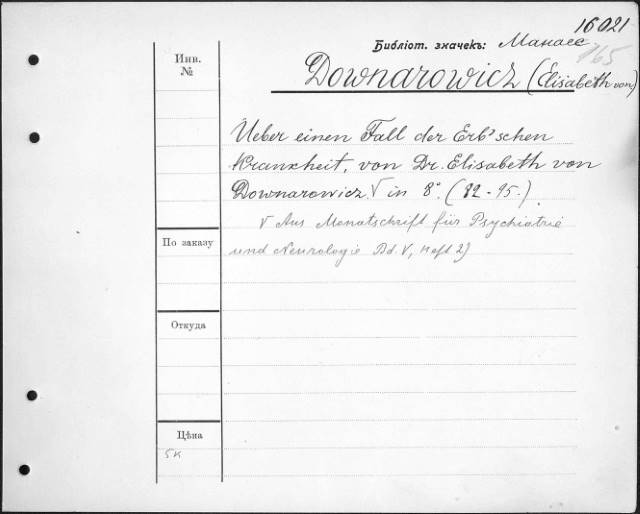 16021
Библіот. значекъ: Манасс
165
Инв.
№
Downarowicz (Elisabeth von)
Ueber einen Fall der Erb'schen
Krankheit, von Dr. Elisabeth von
Downarowicz. V in 8° (82-95.)
V Aus Monatschrift für Psychiatrie
und Neurologie Bd. V, Heft 2)
По заказу
Откуда
Цѣна
5к